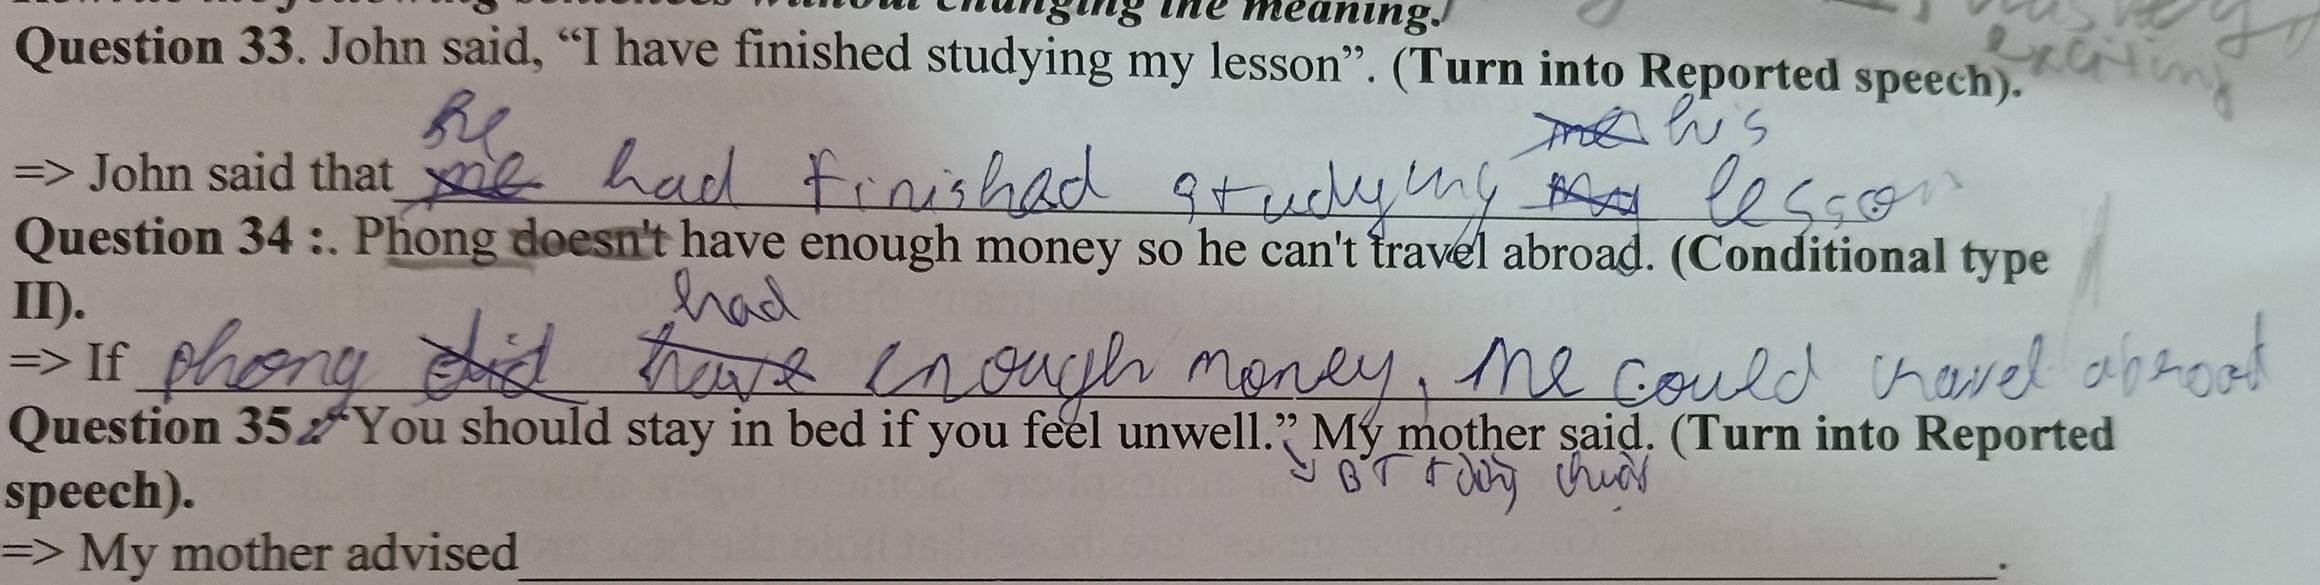 the following sentences without changing the meaning.
exciting
Question 33. John said, “I have finished studying my lesson”. (Turn into Reported speech).
he his
=> John said that me had finishad studying my lesson
Question 34 :. Phong doesn't have enough money so he can't travel abroad. (Conditional type
II).
had
=> If phong did have enough money, he could travel abroad
Question 35 : “You should stay in bed if you feel unwell.” My mother said. (Turn into Reported
speech).
=> My mother advised .